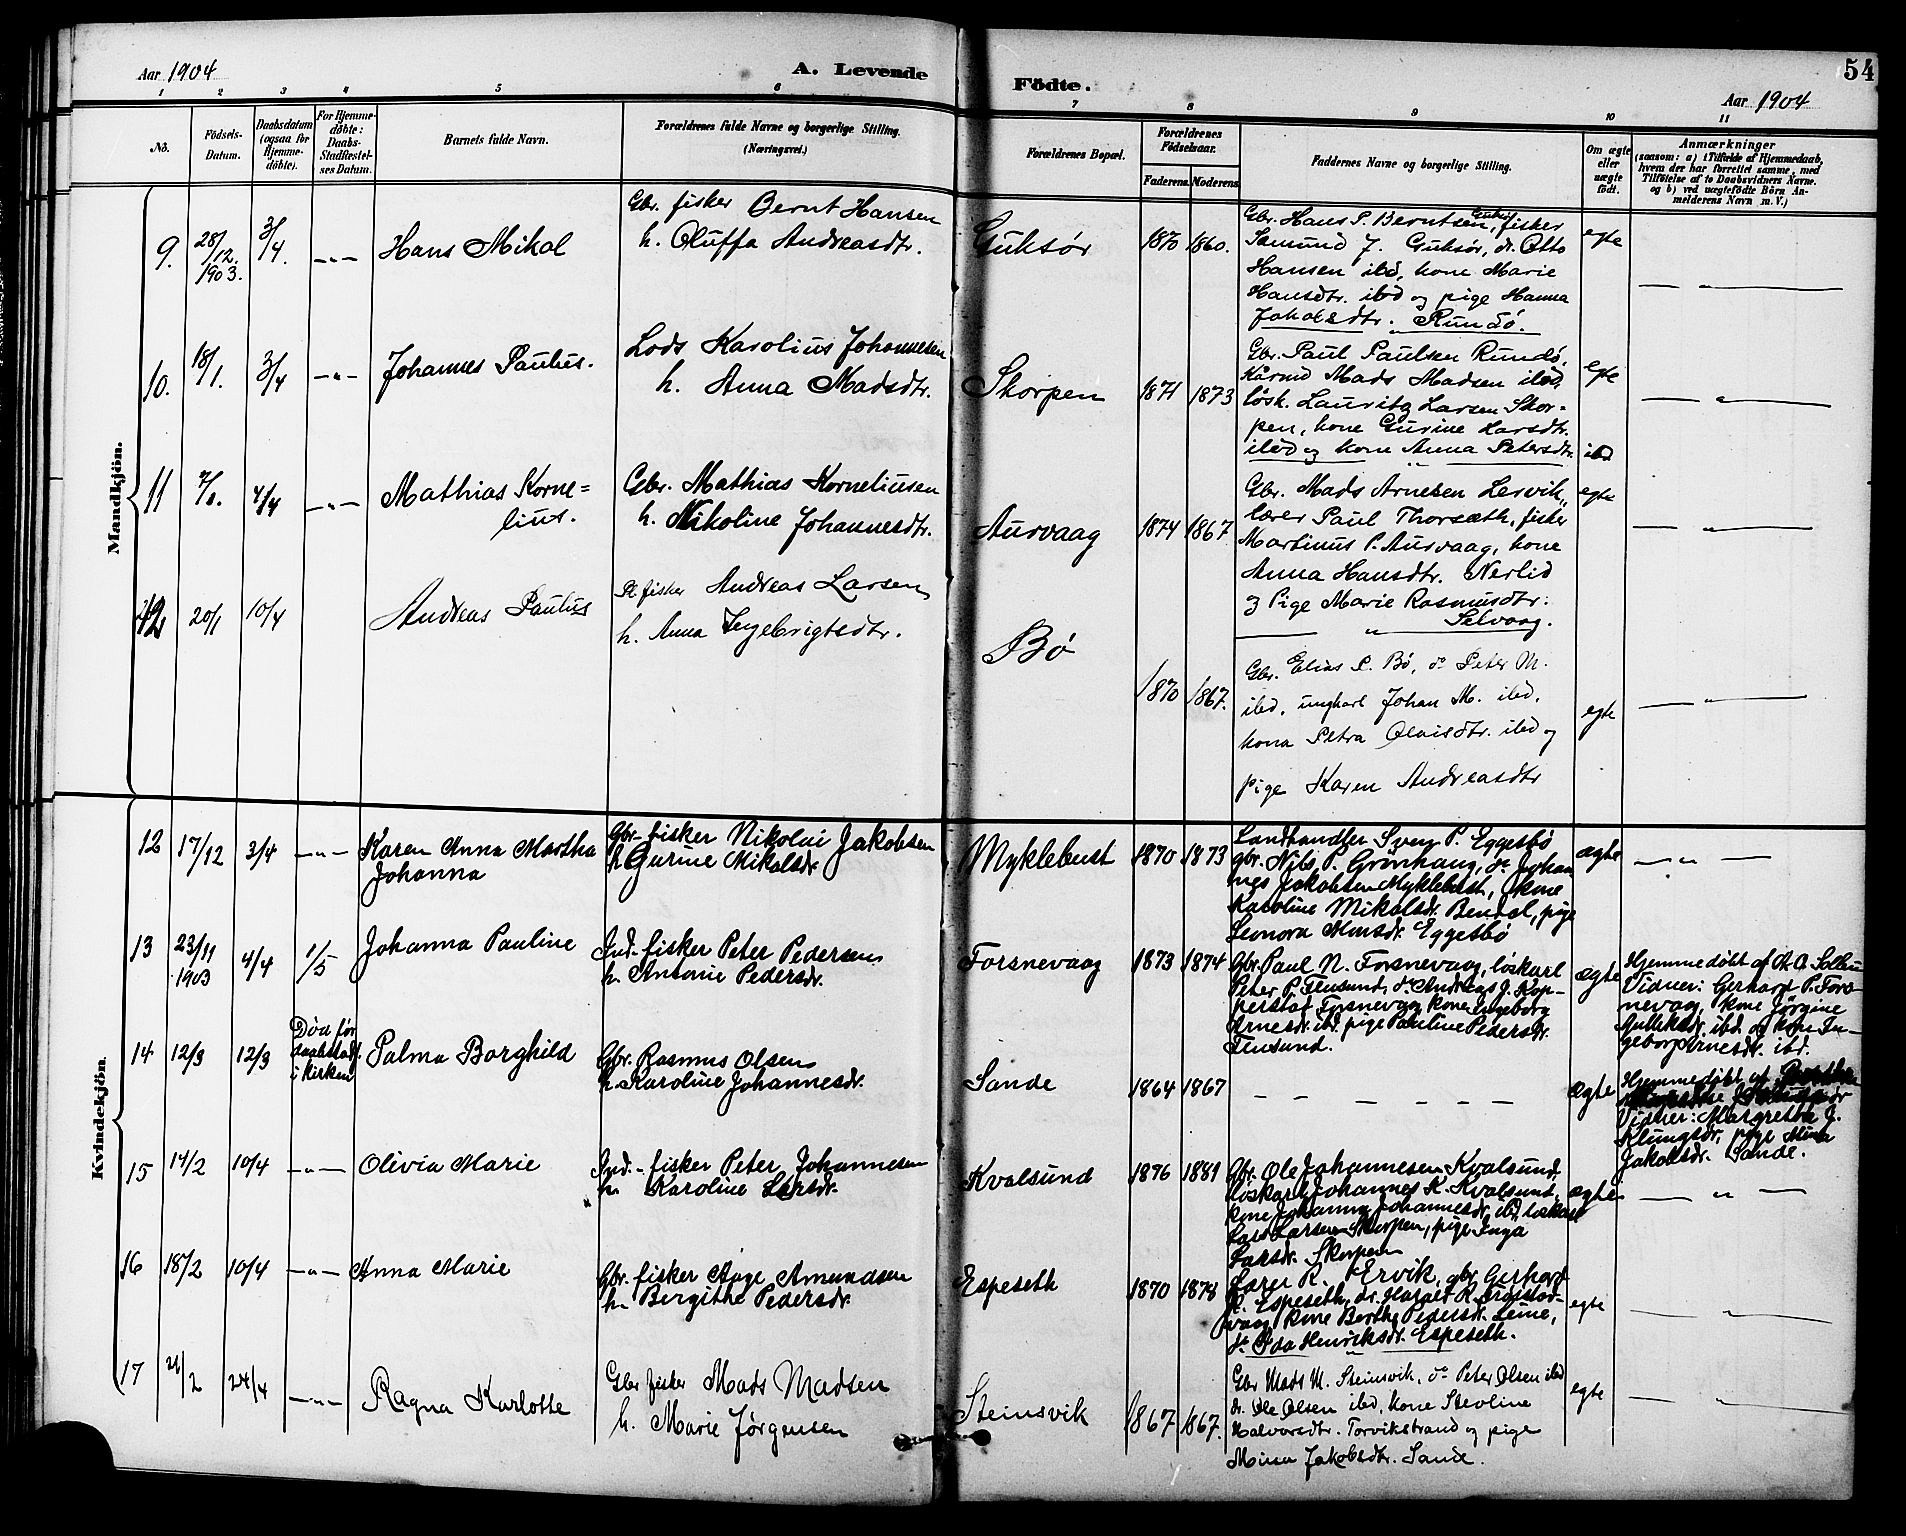 Aar 1904
A. Levende
Födte.
54
Aar 1904
1 2 3 4 5 6 7 8 9 10 11
No.
Födsels-
Datum.
Daabsdatum
(ogsaa for
Hjemme-
döbte).
For Hjemme-
döbte:
Daabs-
Stadfæstel-
ses Datum.
Barnets fulde Navn.
Forældrenes fulde Navne og borgerlige Stilling.
(Næringsvei.)
Forældrenes Bopæl.
Forældrenes
Födselsaar.
Faderens. Moderens.
Faddernes Navne og borgerlige Stilling.
Om ægte
eller
uægte
födt.
Anmærkninger
(saasom: a) i Tilfælde af Hjemmedaab,
hvem der har forrettet samme, med
Tilföielse af to Daabsvidners Navne.
og b) ved uægtefödte Börn An-
melderens Navn m. V.)
Mandkjön.
9.
28/12.
1903.
3/4.
— „ —
Hans Mikal
Gbr. fisker Bernt Hansen
h. Oluffa Andreasdtr.
Guksør
1870 1860.
Gbr. Hans P. Berntsen Guksør, fisker
Samund J. Guksør, do. Otto
Hansen ibd, kone Marie
Hansdtr. ibd og pige Hanna
Jakobsdtr. Rundö.
egte
— „ —
10.
18/1.
3/4
— „ —
Johannes Paulus.
Lods Karolius Johannesen
h. Anna Madsdtr.
Skorpen
1871 1873
Gbr. Paul Paulsen Rundö,
Kårmd Mads Madsen ibd,
løsk. Lauritz Larsen Skor-
pen, kone Gurine Larsdtr.
ibd og kone Anna Petersdtr. ibd
egte
— „ —
11
4/4
— „ —
Mathias Korne=
lius.
Gbr. Mathias Korneliusen
h. Nikoline Johannesdtr.
Aurvaag
1874 1867
Gbr. Mads Arnesen Lervik,
lærer Paul Thorsæth, fisker
Martinus P. Aurvaag, kone
Anna Hansdtr. Nerlid
og Pige Marie Rasmusdtr:
Selvaag.
egte
— „ —
12
20/1
10/4
Andreas Paulus
Pl fisker Andreas Larsen
h. Anna Ingebrigtsdtr.
Bø
1870 1867.
Gbr. Elias P. Bø, do Peter M.
ibd. ungkarl Johan M. ibd.
kona Petra Olaisdtr. ibd og
pige Karen Andreasdtr
egte
— „ —
Kvindekjön
12
17/12
3/4
— „ —
Karen Anna Martha
Johanna
Gbr-fisker Nikolai Jakobsen
h. Gurine Mikalsdr
Myklebust
1870 1873
Landhandler Sven P. Eggesbö
gbr. Nils P. Grönhaug, do Johan
nes Jakobsen Myklebust, kone
Karoline Mikalsdr. Bendal, pige
Leonora Monsdr. Eggesbö
ægte
— „ —
13
23/11
1903
4/4
1/5
Johanna Pauline
Ind-fisker Peter Pedersen
h. Antonie Pedersdr.
Forsnevaag
1873 1874
Gbr. Paul N. Forsnevaag, löskarl
Peter P. Flusund, do Andreas J. Kop-
perstad, Forsnevaag kone Ingeborg
Arnesdr ibd. pige Pauline Pedersdr.
Flusund.
ægte
Hjemmedöbt af
Vidner: Gerhard P. Fors-
nevaag, kone Jörgine
ibd. og kone In-
geborg Arnesdr. ibd.
14
12/3
12/3
Död før
daabstadf.
i kirken
Palma Borghild
Gbr. Rasmus Olsen
h. Karoline Johannesdr.
Sande
1864 1867
— — — — — —
ægte
Hjemmedöbt af
Vidner: Margrethe J.
Klungsdr, pige Mina
Jakobsdr. Sande.
15
14/2
10/4
— „ —
Olivia Marie
Ind-fisker Peter Johannesen
h. Karoline Larsdr.
Kvalsund
1876 1881
Gbr. Ole Johannesen Kvalsund,
löskarl Johannes K. Kvalsund,
kone Johanna Johannesdr, ibd. löskarl
Lars Larsen Skorpen, pige Inga
Larsdr. Skorpen
ægte
— „ —
16
18/2
10/4
— „ —
Anna Marie
Gbr-fisker Aage Amundsen
h. Bergithe Pedersdr.
Espeseth
1870 1878
Lærer R. Ervik, gbr. Gerhard
R. Espeseth, do. Harald K.
vaag kone Berthe Pedersdr. Leine,
do Oda Henriksdr. Espeseth.
egte
— „ —
17
24/4
— „ —
Ragna Karlotte
Gbr fisker Mads Madsen
h. Marie Jørgensen
Steinsvik
1867 1867.
Gbr Mads M. Steinsvik, do Peter Olsen ibd
do. Ole Olsen ibd, kone Stevline
Halvorsdtr. Torvikstrand og pige
Mina Jakobsdtr. Sande.
egte
— „ —